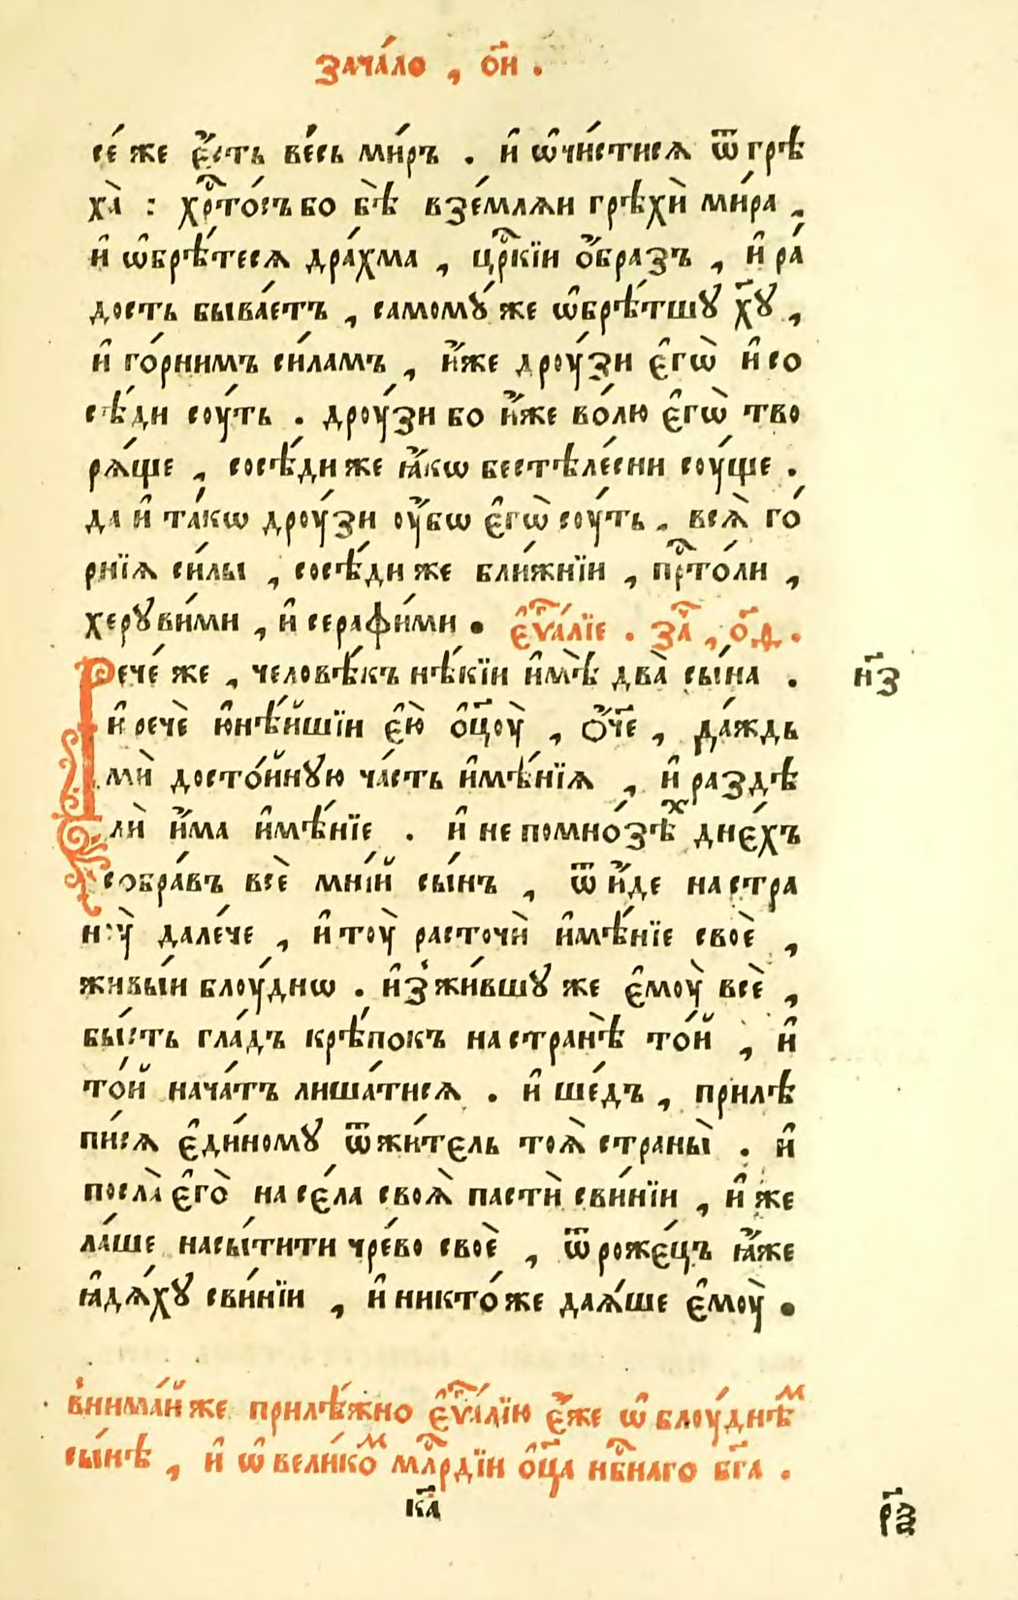 зача́ло , о҃и .
се́ же є҆́сть ве́сь ми́ръ . и҆ ѡ҆чи́стисѧ ѿ грѣ
ха̀ : хрⷭ҇то́съ бо бѣ̀ взе́млѧи грѣхѝ ми́ра ,
и҆ ѡ҆брѣ́тесѧ дра́хма , цр҇кїи о҆́бразъ , и҆ ра́
дость быва́етъ , самомꙋ́ же ѡ҆брѣ́тшꙋ хꙋ҃ ,
и҆ го́рнимъ си́ламъ , и҆́же дроу́зи є҆гѡ̀ и҆ со
сѣ́ди соу́ть . дроу́зи бо и҆́же во́лю є҆гѡ̀ тво
рѧ́ще , сосѣ́ди же ꙗ҆́кѡ бестѣле́сни соу́ще .
да и҆ та́кѡ дроу́зи оу҆́бѡ є҆гѡ̀ соу́ть . всѧ̀ го́
рнїѧ си́лы , сосѣ́ди же бли́жнїи , прⷭ҇то́ли ,
херꙋви́ми , и҆ серафи́ми . є҆ѵⷢ҇а́лїе . за҇ , о҃ѳ .
Рече́ же , человѣ́къ нѣ́кїи и҆мѣ̀ два̀ сы́на . н҃з
и҆ речѐ ю҆нѣ́йшїи є҆ю̀ ѻ҆ц҃оу̀ , ѻ҆́ч҃е , да́ждь
мѝ досто́йнꙋю ча́сть и҆мѣ́нїѧ , и҆ раздѣ
лѝ и҆́ма и҆мѣ́нїе . и҆ не помно́зѣⷯ днє́хъ
собра́въ всѐ мні́й сы́нъ , ѿ и҆́де на стра
ноу̀ дале́че , и҆ тоу̀ расточѝ и҆мѣ́нїе своѐ ,
живы́и блоу́днѡ . и҆зжи́вшꙋ же є҆моу̀ всѐ ,
бы́сть гла́дъ крѣ́покъ на странѣ̀ то́й , и҆
то́й нача́тъ лиша́тисѧ . и҆ ше́дъ , прилѣ
пи́сѧ є҆ди́номꙋ ѿ жи́тель тоѧ̀ страны̀ . и҆
посла̀ є҆го̀ на се́ла своѧ̀ пастѝ свинїи , и҆ же
ла́ше насы́тити чре́во своѐ , ѿ рожє́цъ ꙗ҆́же
ꙗ҆дѧ́хꙋ свинїи , и҆ никто́же даѧ́ше є҆моу̀ .
внима́й же прилѣ́жно є҆ѵⷢ҇а́лїю є҆́же ѡ҆ блоу́днѣⷨ
сы́нѣ , и҆ ѡ҆ вели́коⷨ млⷭ҇рдїи ѻ҆ц҃а нбⷭ҇наго бг҃а .
к҃а
р҃з